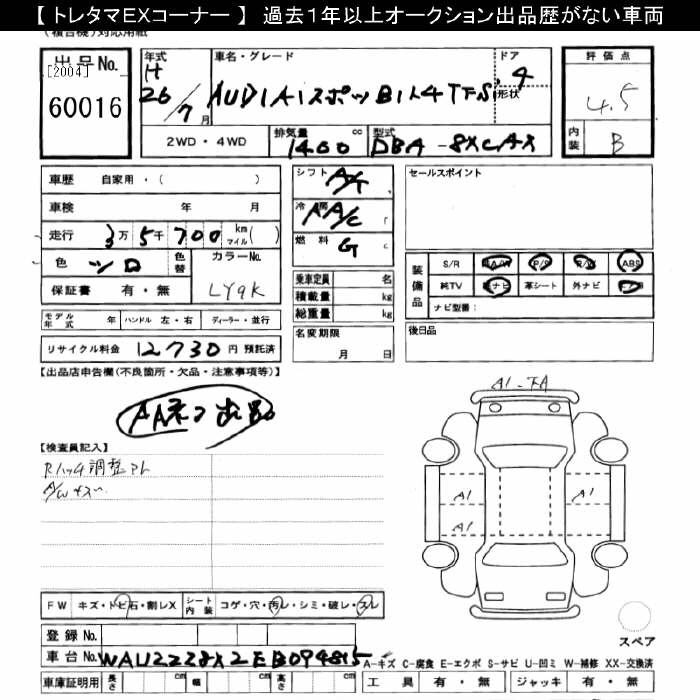 【 トレタマEXコーナー 】 過去1年以上オークション出品歴がない車両
(複合機)対応用紙
出品No.
[2004]
60016
年式 車名・グレード ドア 評価点
H 26/7月 AUDI A1スポーツB 1.4TFSI 4 形状 4.5
2WD・4WD 排気量 cc 型式 内装
1400 DBA-8XCAX B
車歴 自家用・( )
シフト A/T
セールスポイント
車検 年 月
冷房 AA/C
走行 3万5千700km マイル( )
燃料 G
色 シロ 色替 カラーNo.
LY9K
保証書 有・無
乗車定員 名
積載量 kg
総重量 kg
装備品 S/R 純A/W P/S R/W ABS
純TV 純ナビ 革シート 外ナビ
ナビ型番:
モデル年式 年 ハンドル 左・右 ディーラー・並行
名変期限
月 日
後日品
リサイクル料金 12730円 預託済
【出品店申告欄(不良箇所・欠品・注意事項等)】
AAネコ出品
A1 - 下A
【検査員記入】
Rハッチ調整アト
A/Wキズ小
A1 A1
A1
FW キズ・トビ石・割レX シート内装 コゲ・穴・汚レ・シミ・破レ・スレ
スペア
登録No.
車台No. WAUZZZ8X2EB094815
A-キズ C-腐食 E-エクボ S-サビ U-凹ミ W-補修 XX-交換済
車庫証明用 長さ cm 幅 cm 高さ cm 工具 有・無 ジャッキ 有・無